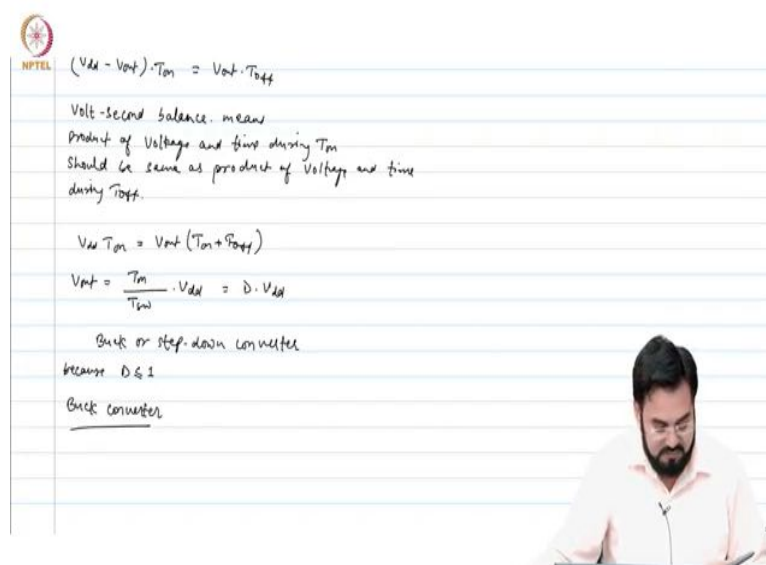 NPTEL
(Vdd - Vout) . Ton = Vout . Toff
Volt-second balance. means
Product of Voltage and time during Ton
should be same as product of Voltage and time
during Toff.
Vdd Ton = Vout (Ton + Toff)
Vout = Ton / Tsw . Vdd = D . Vdd
Buck or step-down converter
because D ≤ 1
Buck converter